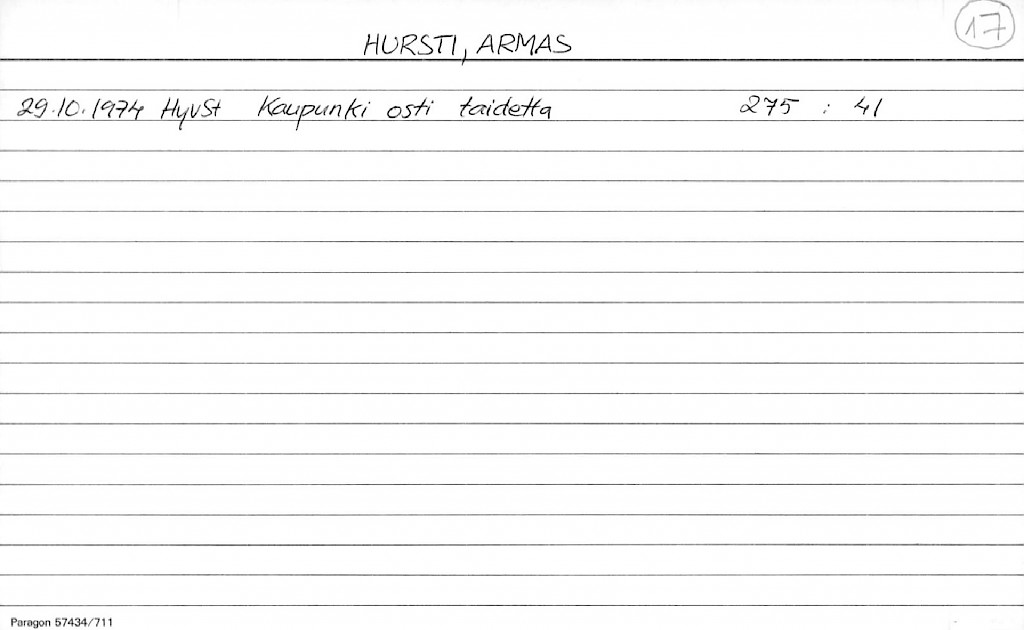 17
HURSTI, ARMAS
29.10.1974 HyvSt Kaupunki osti taidetta 275 : 41
Paragon 57434/711